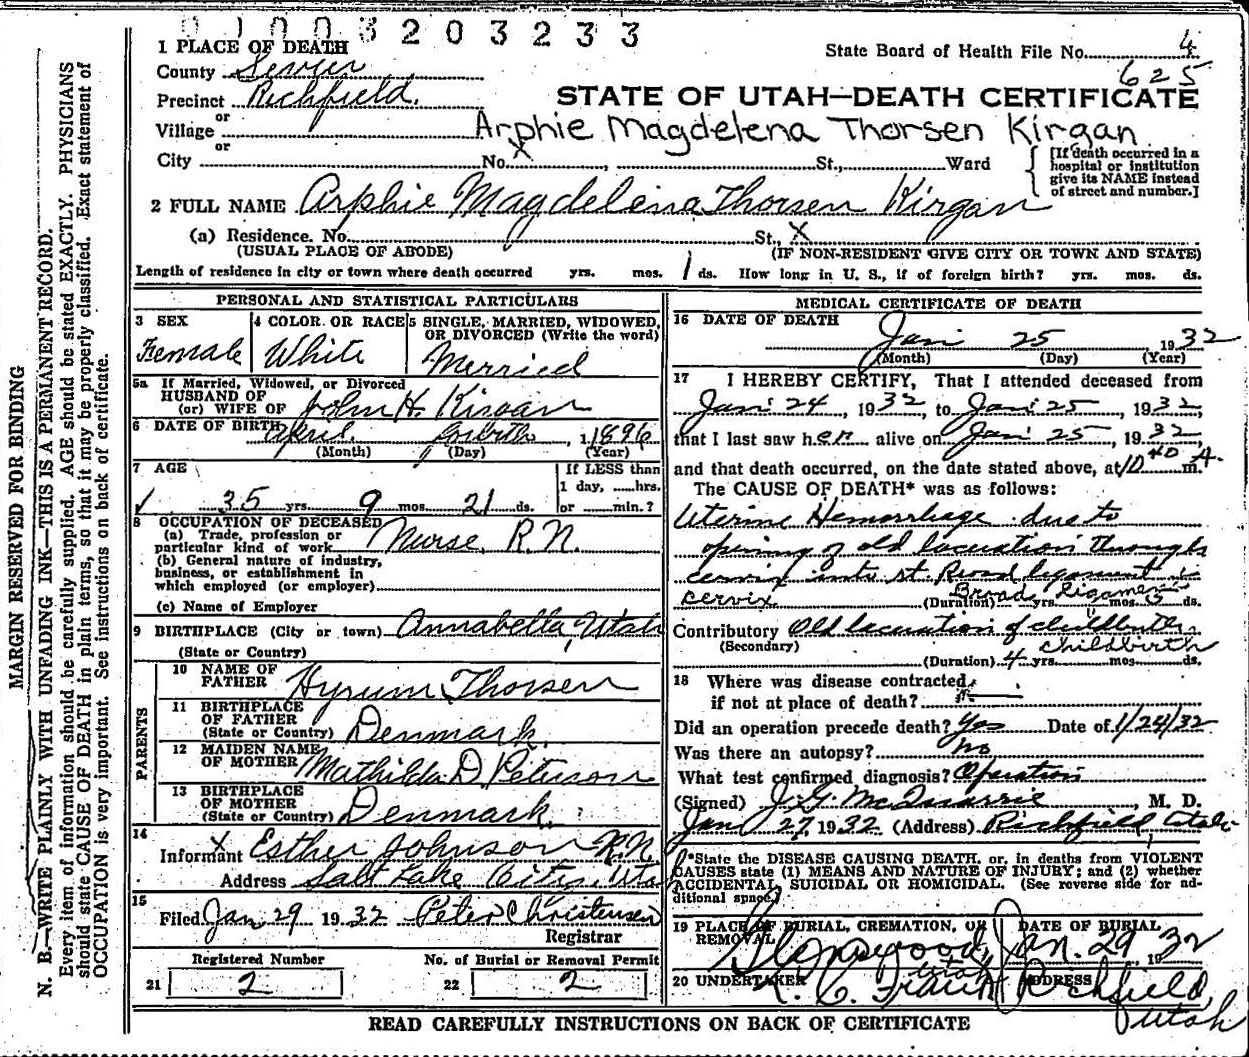 0 1 0 0 3 2 0 3 2 3 3
1 PLACE OF DEATH
State Board of Health File No. 4
County Sevier
625
Precinct Richfield.
STATE OF UTAH—DEATH CERTIFICATE
or
Village
Arphie Magdelena Thorsen Kirgan
or
City No. X St., Ward
[If death occurred in a hospital or institution give its NAME instead of street and number.]
2 FULL NAME Arphie Magdelena Thorsen Kirgan
(a) Residence. No. St., X
(USUAL PLACE OF ABODE) (IF NON-RESIDENT GIVE CITY OR TOWN AND STATE)
Length of residence in city or town where death occurred yrs. mos. 1 ds. How long in U. S., if of foreign birth? yrs. mos. ds.
PERSONAL AND STATISTICAL PARTICULARS
3 SEX 4 COLOR OR RACE 5 SINGLE, MARRIED, WIDOWED, OR DIVORCED (Write the word)
Female White Married
5a If Married, Widowed, or Divorced
HUSBAND OF
(or) WIFE OF John H. Kirgan
6 DATE OF BIRTH April fourth, 1896
(Month) (Day) (Year)
7 AGE If LESS than
1 day, ......hrs.
35 yrs. 9 mos. 21 ds. or ......min.?
8 OCCUPATION OF DECEASED
(a) Trade, profession or
particular kind of work Nurse, R.N.
(b) General nature of industry,
business, or establishment in
which employed (or employer)
(c) Name of Employer
9 BIRTHPLACE (City or town) Annabella, Utah
(State or Country)
PARENTS
10 NAME OF
FATHER Hyrum Thorsen
11 BIRTHPLACE
OF FATHER
(State or Country) Denmark.
12 MAIDEN NAME
OF MOTHER Mathilda D. Peterson
13 BIRTHPLACE
OF MOTHER
(State or Country) Denmark.
14
X
Informant Esther Johnson R.N.
Address Salt Lake City, Utah
15
Filed Jan 29 1932 Peter Christensen
Registrar
Registered Number No. of Burial or Removal Permit
21 2 22 2
MEDICAL CERTIFICATE OF DEATH
16 DATE OF DEATH
Jan 25 1932
(Month) (Day) (Year)
17 I HEREBY CERTIFY, That I attended deceased from
Jan 24, 1932 to Jan 25, 1932,
that I last saw her alive on Jan 25, 1932
and that death occurred, on the date stated above, at 10 40 A. m.
The CAUSE OF DEATH* was as follows:
Uterine Hemorrhage due to
opening of old laceration through
cervix into rt Broad ligament
cervix Broad ligament
(Duration) yrs. mos. ds.
Contributory Old laceration of childbirth
(Secondary) childbirth
(Duration) 4 yrs. mos. ds.
18 Where was disease contracted,
if not at place of death?
Did an operation precede death? Yes Date of 1/24/32
Was there an autopsy? No
What test confirmed diagnosis? Operation
(Signed) J. G. McQuarrie, M. D.
Jan 27, 1932 (Address) Richfield, Utah
*State the DISEASE CAUSING DEATH, or, in deaths from VIOLENT
CAUSES state (1) MEANS AND NATURE OF INJURY; and (2) whether
ACCIDENTAL, SUICIDAL OR HOMICIDAL. (See reverse side for ad-
ditional space.)
19 PLACE OF BURIAL, CREMATION, OR REMOVAL DATE OF BURIAL
Glenwood, Utah Jan. 29 1932
20 UNDERTAKER ADDRESS
Richfield,
Utah
READ CAREFULLY INSTRUCTIONS ON BACK OF CERTIFICATE
MARGIN RESERVED FOR BINDING
N. B.—WRITE PLAINLY WITH UNFADING INK—THIS IS A PERMANENT RECORD.
Every item of information should be carefully supplied. AGE should be stated EXACTLY. PHYSICIANS
should state CAUSE OF DEATH in plain terms, so that it may be properly classified. Exact statement of
OCCUPATION is very important. See instructions on back of certificate.